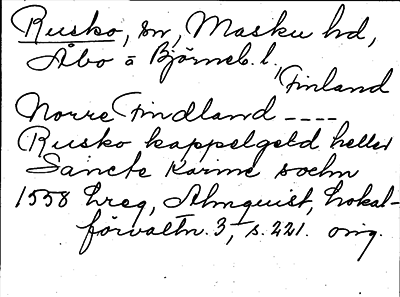 Rusko, sn, Masku hd,
Åbo o Björneb. l.
Finland
Norre Findland ----
Rusko kappelgeld heller
Sancte Karine sochn
1558 Lreg, Almquist, Lokal-
förvaltn. 3, s. 221. orig.